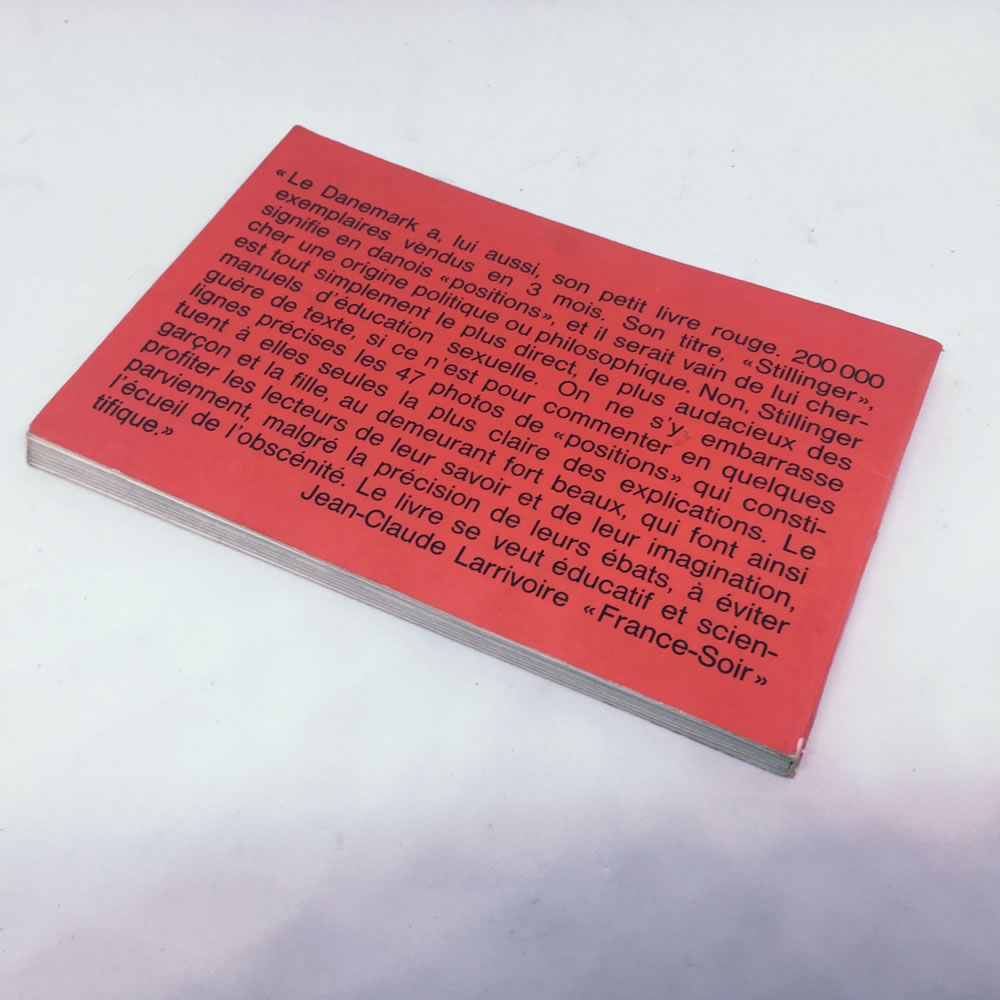 «Le Danemark a, lui aussi, son petit livre rouge. 200 000
exemplaires vèndus en 3 mois. Son titre, «Stillinger»,
signifie en danois «positions», et il serait vain de lui cher-
cher une origine politique ou philosophique. Non, Stillinger
est tout simplement le plus direct, le plus audacieux des
manuels d'éducation sexuelle. On ne s'y embarrasse
guère de texte, si ce n'est pour commenter en quelques
lignes précises les 47 photos de «positions» qui consti-
tuent à elles seules la plus claire des explications. Le
garçon et la fille, au demeurant fort beaux, qui font ainsi
profiter les lecteurs de leur savoir et de leur imagination,
parviennent, malgré la précision de leurs ébats, à éviter
l'écueil de l'obscénité. Le livre se veut éducatif et scien-
tifique.»
Jean-Claude Larrivoire «France-Soir»